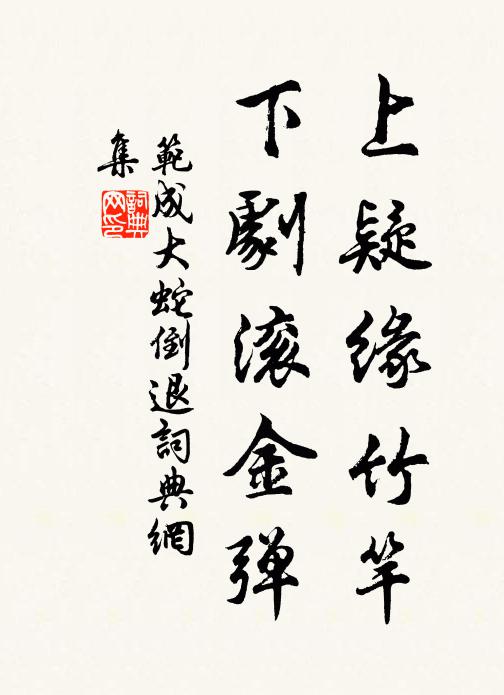 上疑缘竹竿
下劇滚金弹
範成大蛇倒退詞典網
集
詞典网印